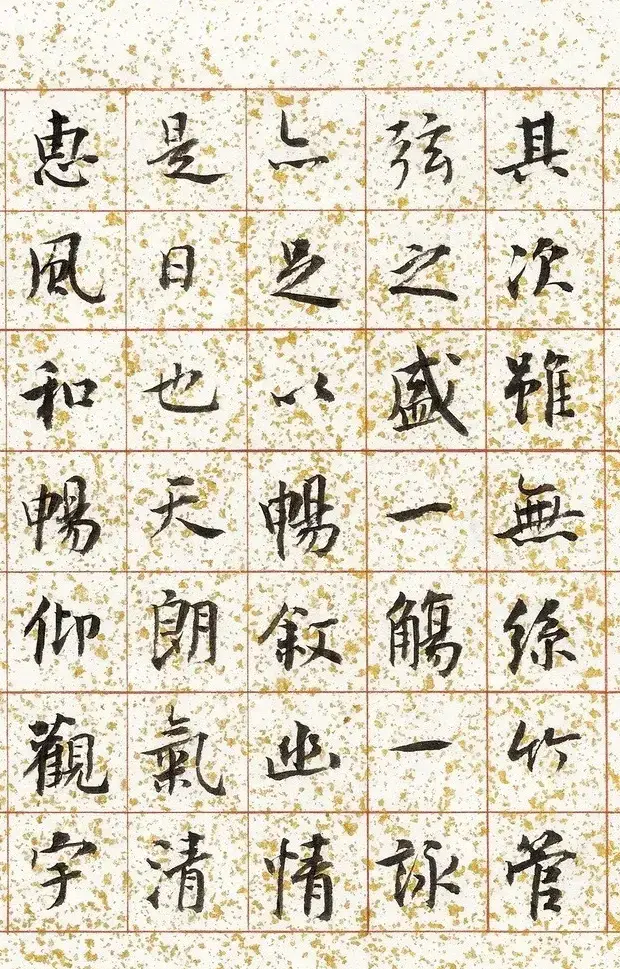 其次雖無絲竹管
弦之盛一觴一詠
亦足以暢敘幽情
是日也天朗氣清
惠風和暢仰觀宇